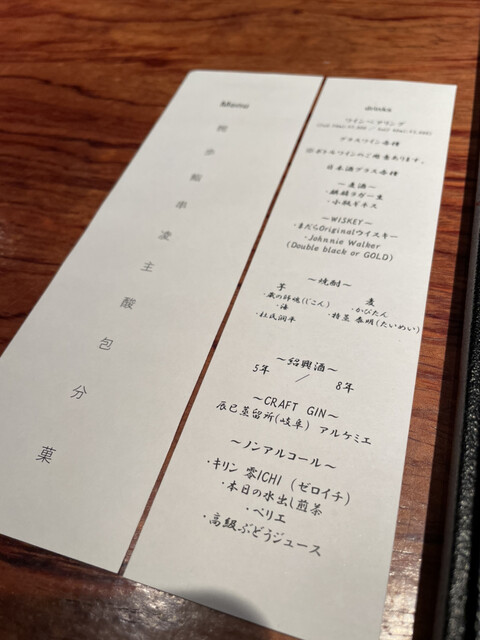 Menu
步
鮨
串
凌
主
酸
包
分
菓
drinks
ワインペアリング
グラスワイン各種
※ボトルワインのご用意あります。
日本酒グラス各種
〜麦酒〜
・麒麟ラガー生
・小瓶ギネス
〜WISKEY〜
・まだらOriginalウイスキー
・Johnnie Walker
(Double black or GOLD)
〜焼酎〜
芋　麦
・蔵の師魂(じこん)　・かびたん
・海　・特蒸 泰明(たいめい)
・杜氏潤平
〜紹興酒〜
5年 / 8年
〜CRAFT GIN〜
辰巳蒸留所(岐阜) アルケミエ
〜ノンアルコール〜
・キリン 零ICHI (ゼロイチ)
・本日の水出し煎茶
・ペリエ
・高級ぶどうジュース